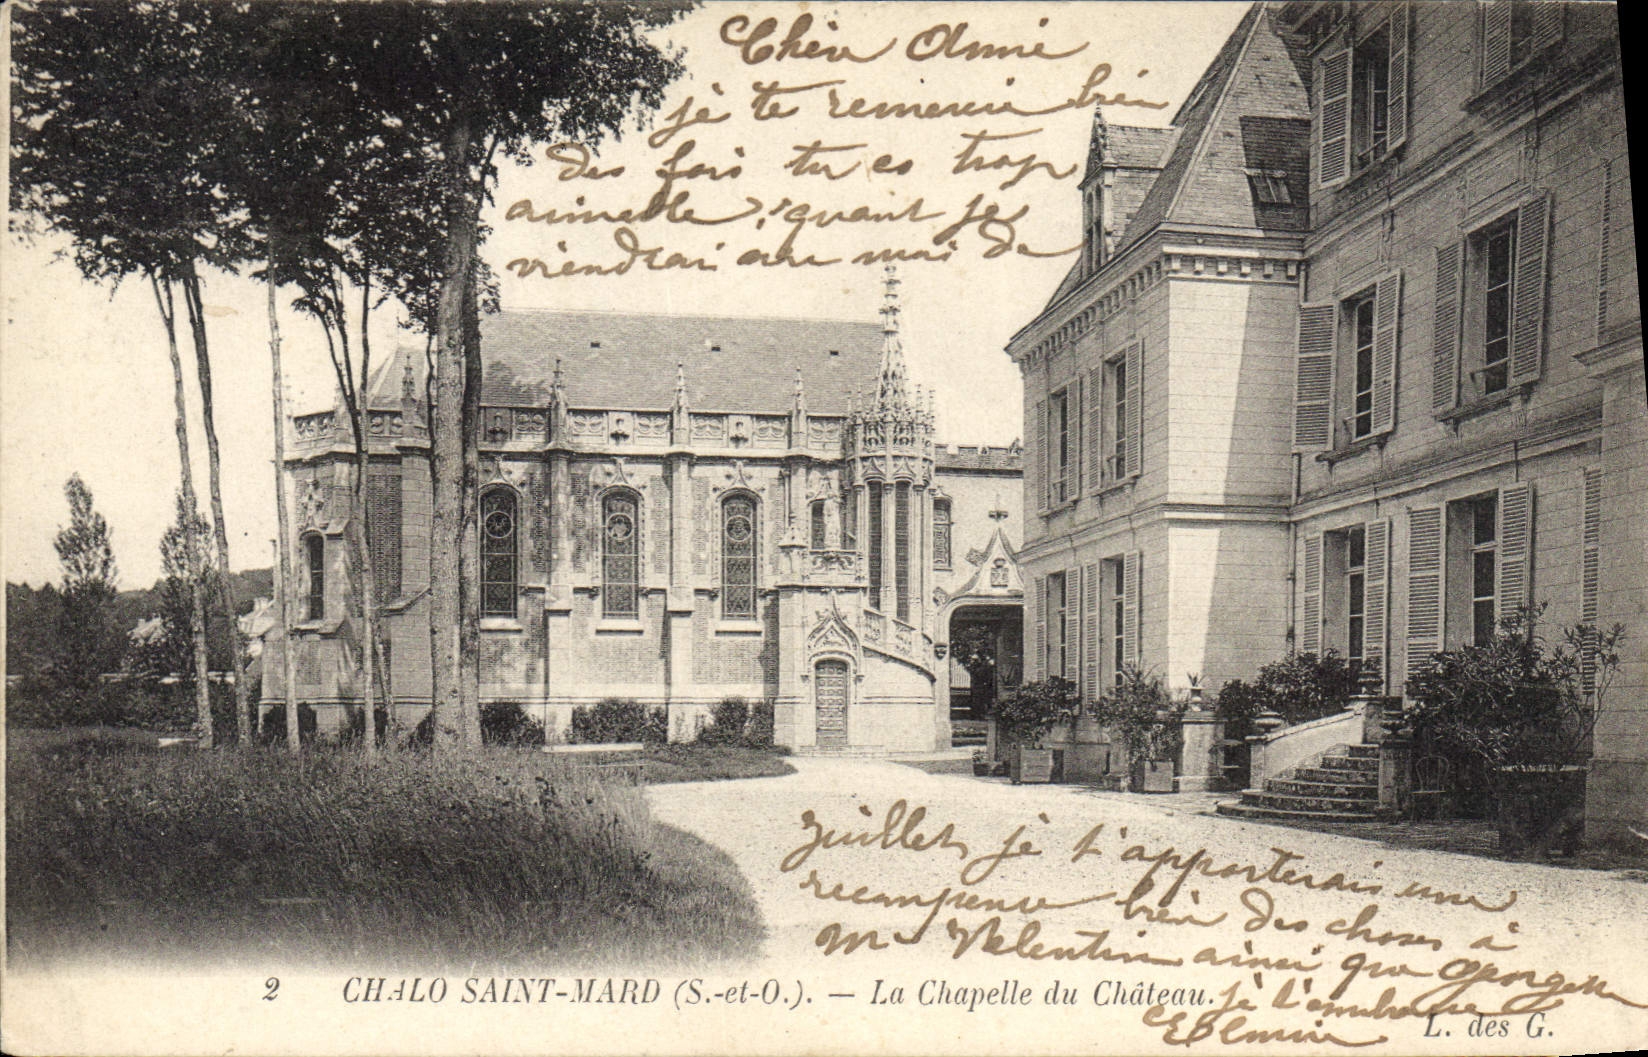 Chère Amie
je te remercie bien
des fois tu es trop
aimable, quant je
viendrai au moi de
Juillet je t'apporterais une
recompense bien des choses à
Mr Valentin ainsi que Georgette
je t'embrasse
2 CHALO SAINT-MARD (S.-et-O.). — La Chapelle du Château.
L. des G.